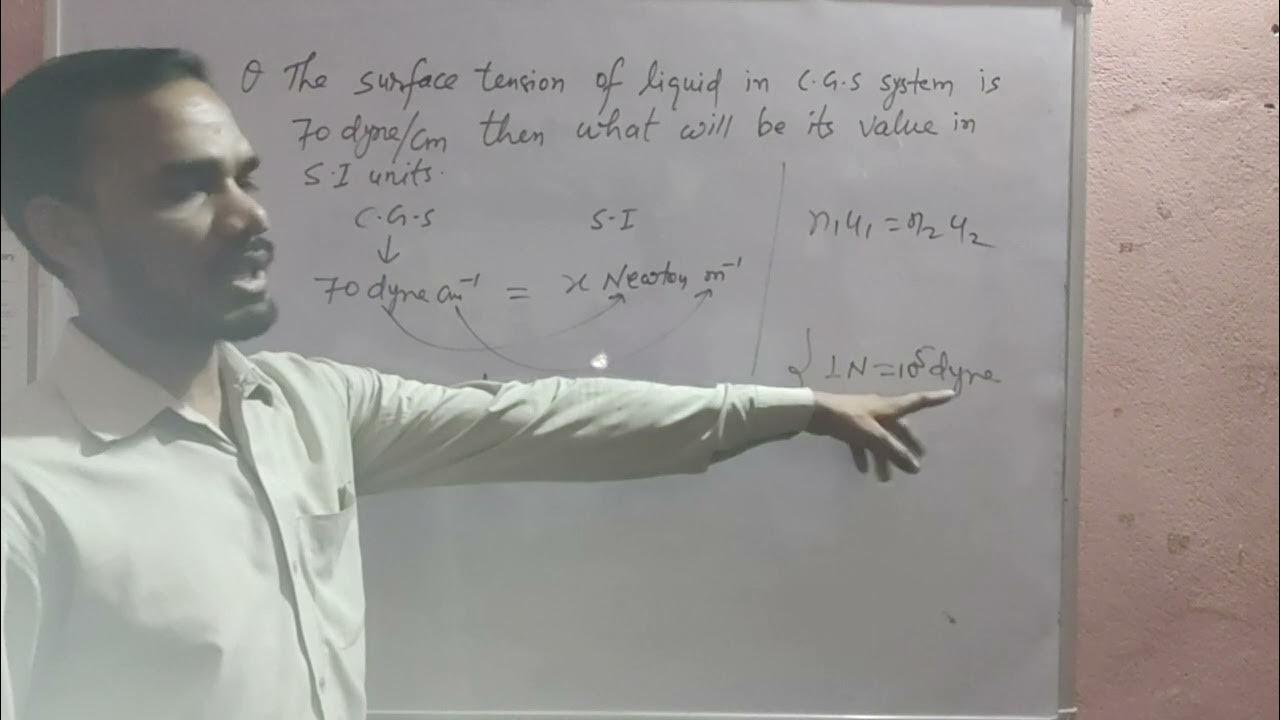 Q The surface tension of liquid in C.G.S system is
70 dyne/cm then what will be its value in
S.I units.
C.G.S S.I
↓
70 dyne cm⁻¹ = x Newton m⁻¹
n₁u₁ = n₂u₂
{ 1N = 10⁵ dyne